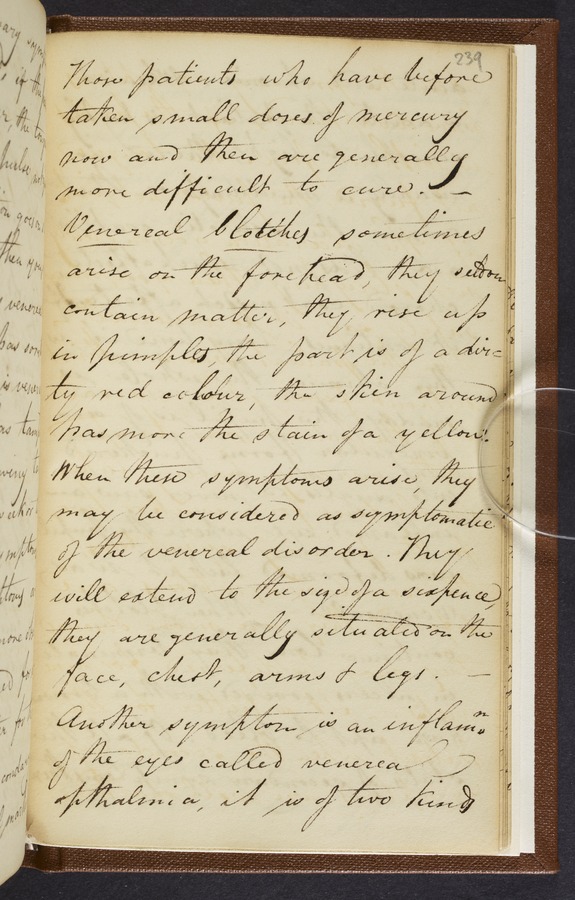 239
Those patients who have before
taken small doses of mercury
now and then are generally
more difficult to cure. —
Venereal blotches sometimes
arise on the forehead, they seldom
contain matter, they rise up
in pimples, the part is of a dir=
ty red colour, the skin around
has more the stain of a yellow.
When these symptoms arise, they
may be considered as symptomatic
of the venereal disorder. They
will extend to the size of a sixpence,
they are generally situated on the
face, chest, arms & legs. —
Another symptom is an inflamn.
of the eyes called venereal
opthalmia, it is of two kinds